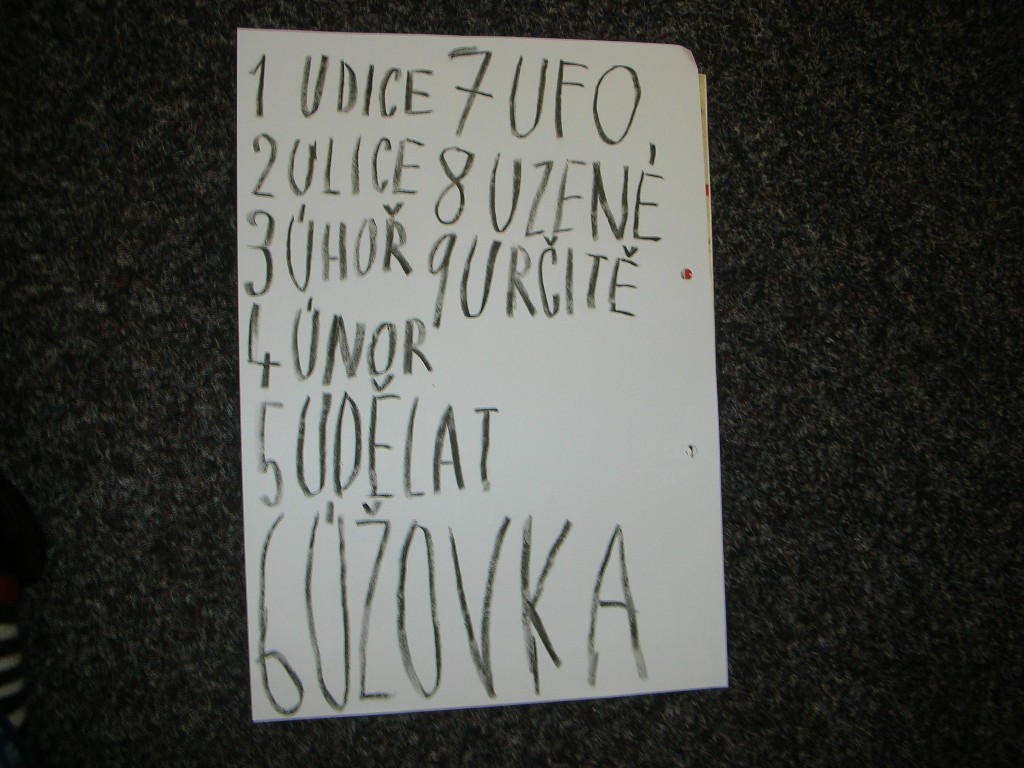 1 UDICE 7 UFO
2 ULICE 8 UZENÉ
3 ÚHOŘ 9 URČITĚ
4 ÚNOR
5 UDĚLAT
6 ÚŽOVKA